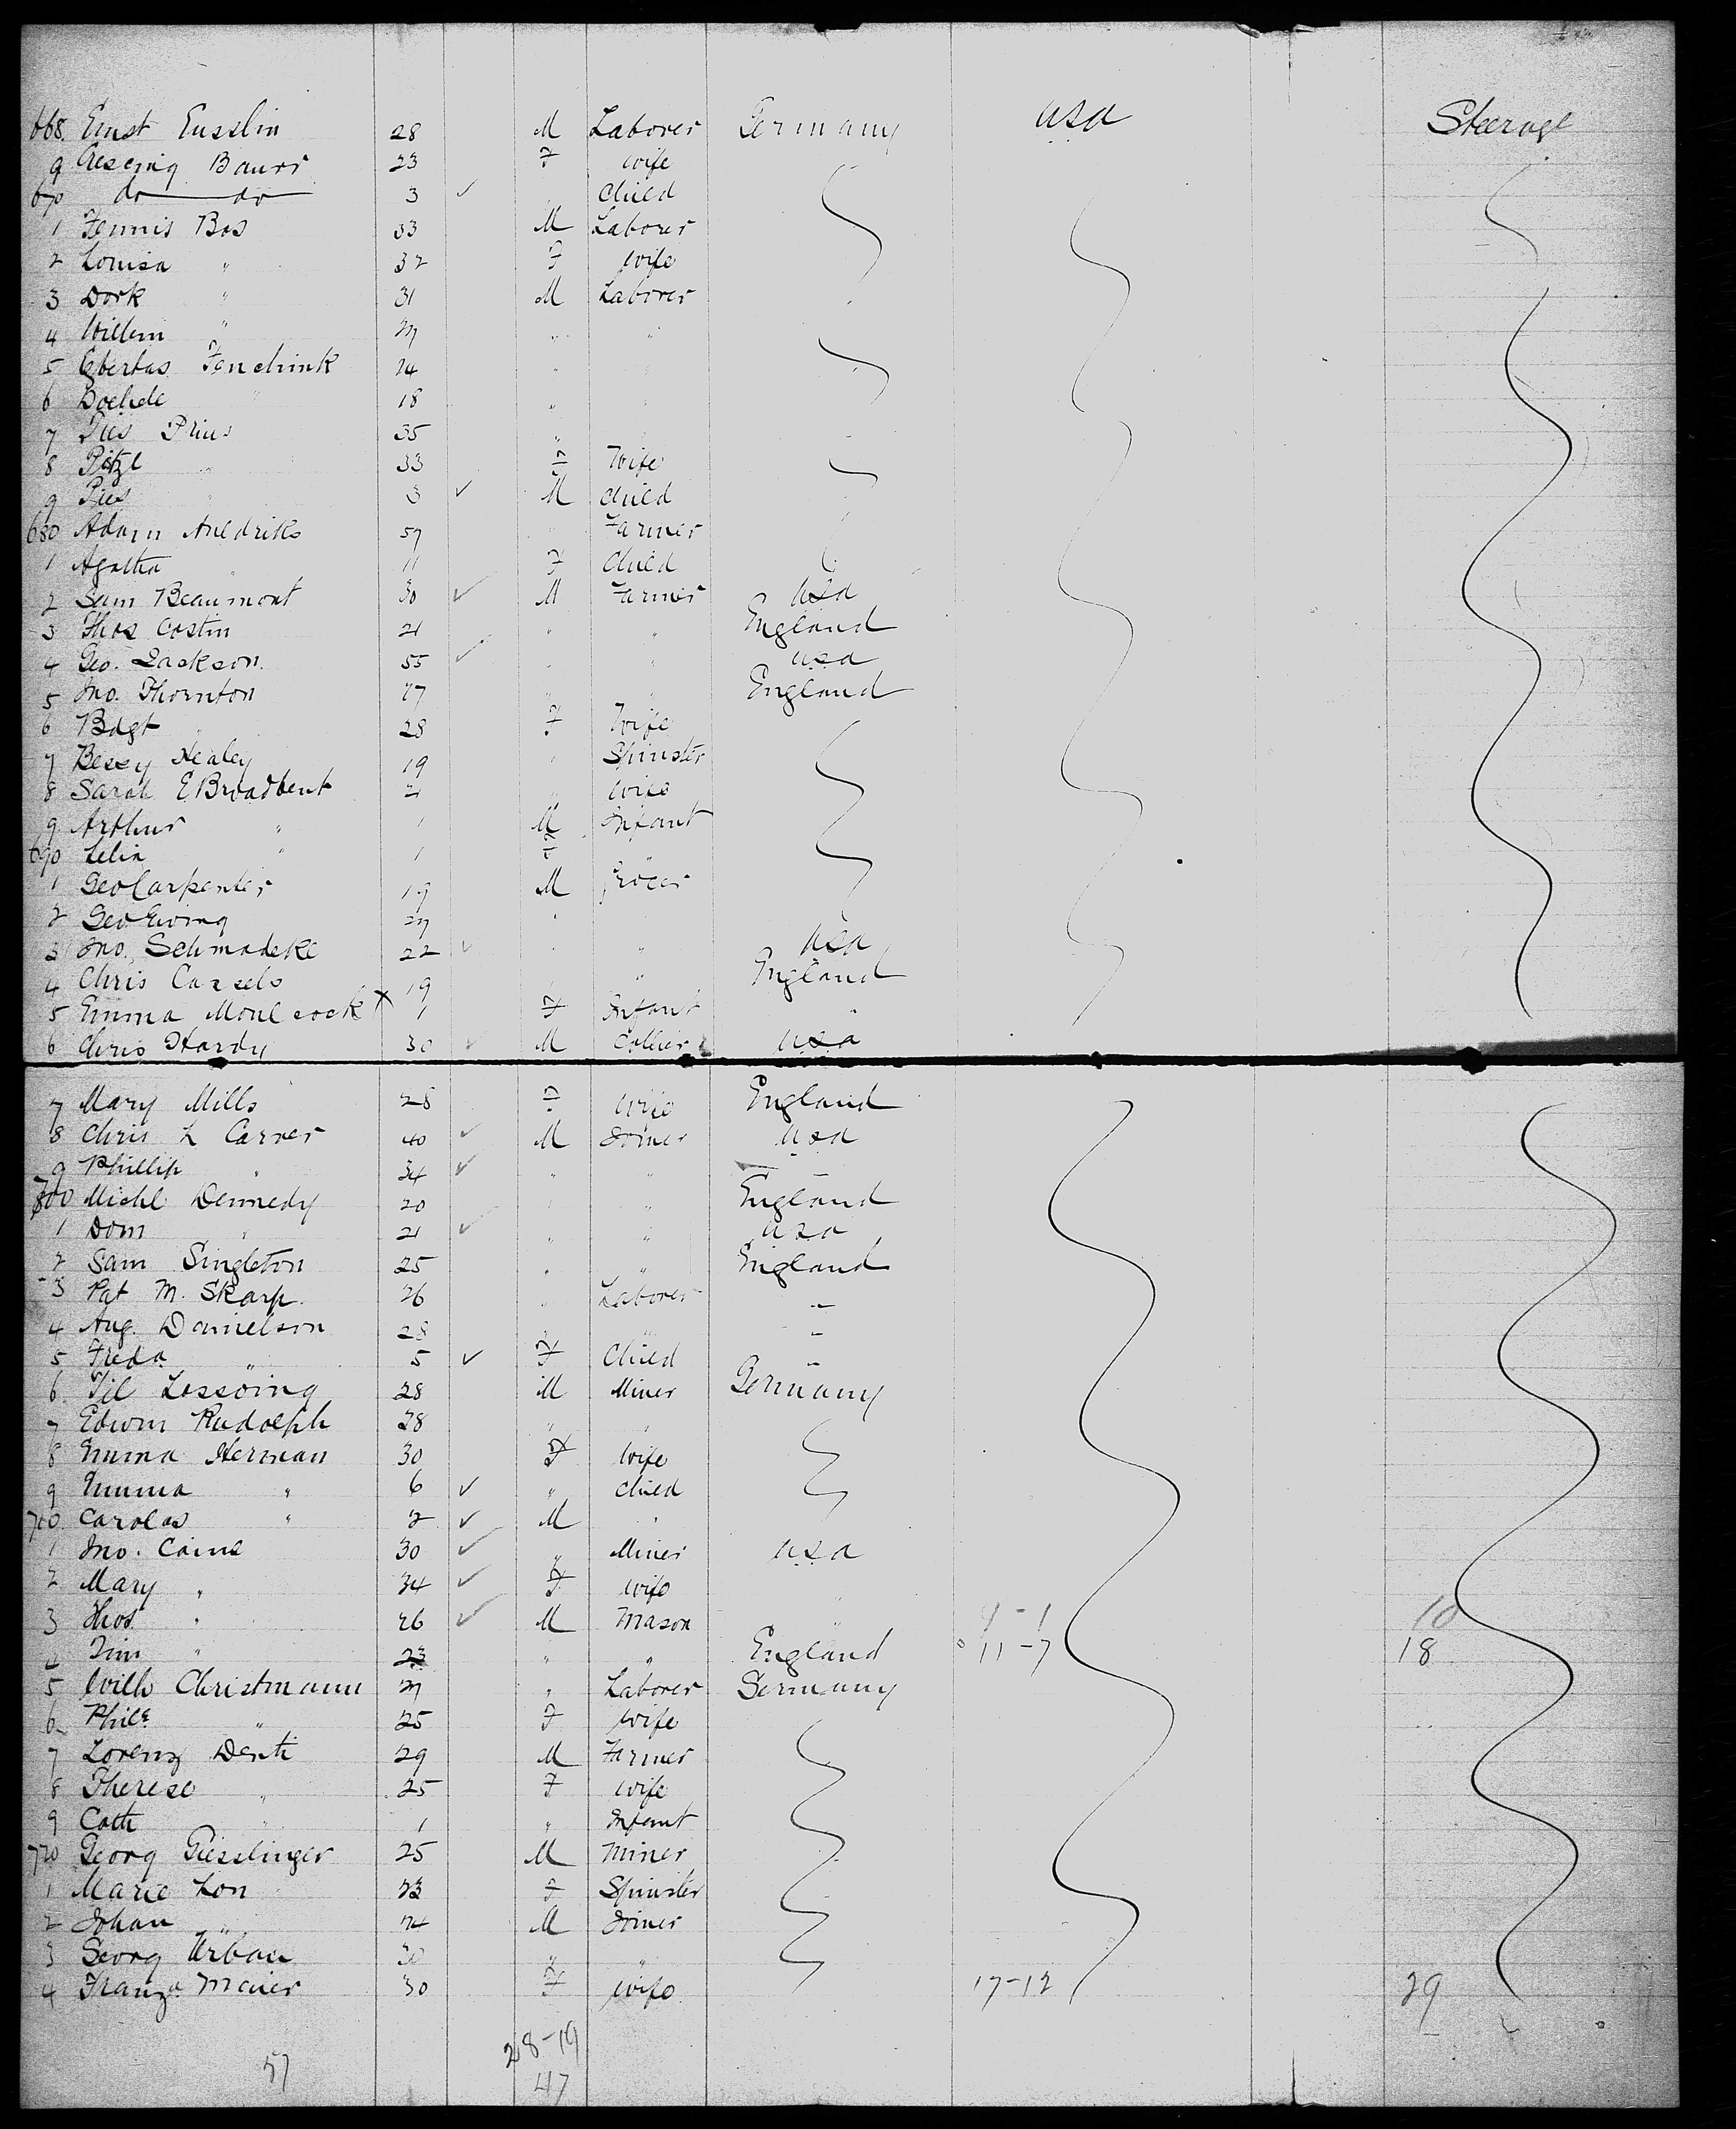 668. Ernst Eusslin 28 M Laborer Germany USA Steerage
9 Baurr 23 F Wife
670 do do 3 ✓ Child
1 Fennis Bos 33 M Laborer
2 Louisa " 32 F Wife
3 Dork " 31 M Laborer
4 Willem " 27 " "
5 Egbertus 24 "
6 " 18 "
7 Pies Prius 35 "
8 " 33 F Wife
9 Pies " 3 ✓ M Child
680 Adam 57 " Farmer
1 Agatha " 11 F Child
2 Sam Beaumont 30 ✓ M Farmer USA
3 Thos Costin 21 " " England
4 Geo. Jackson 55 ✓ " " USA
5 Jno. Thornton 27 " " England
6 Bdgt " 28 F Wife
7 Bessy Healey 19 " Spinster
8 Sarah E Broadbent 21 " Wife
9 Arthur " 1 M Infant
690 Lelia " 1 F "
1 Geo Carpenter 19 M Grocer
2 Geo Ewing 27 "
3 Jno. Schmadeke 22 ✓ " " USA
4 Chris Cassels 19 " " England
5 Emma Moulcock X 1 F Infant "
6 Chris Hardy 30 ✓ M Collier USA
7 Mary Mills 28 F Wife England
8 Chris L Carver 40 ✓ M Joiner USA
9 Phillip " 34 ✓ " " "
700 Michl Dennedy 20 " " England
1 Dom " 21 ✓ " " USA
2 Sam Singleton 25 " " England
3 Pat M. Skarp. 26 " Laborer "
4 Aug. Danielson 28 " " "
5 Freda " 5 ✓ F Child "
6. Lossoing 28 M Miner Germany
7 Edwin Rudolph 28 " "
8 Emma Herman 30 F Wife
9 Emma " 6 ✓ " Child
710 Carolas " 2 ✓ M "
1 Jno. Caine 30 ✓ " Miner USA
2 Mary " 34 ✓ F Wife
3 Thos " 26 ✓ M Mason 4-1 10
4 Jim " 23 " " England 11-7 18
5 Wilh Christmann 27 " Laborer Germany
6 " 25 F Wife
7 Lorenz Denti 29 M Farmer
8 Therese " 25 F Wife
9 Cath " 1 " Infant
720 Georg Giesslinger 25 M Miner
1 Marie Lon 23 F Spinster
2 Johan " 24 M Joiner
3 Georg Urban 30 " "
4 Franza Maier 30 F Wife 17-12 29
28-19
57 47